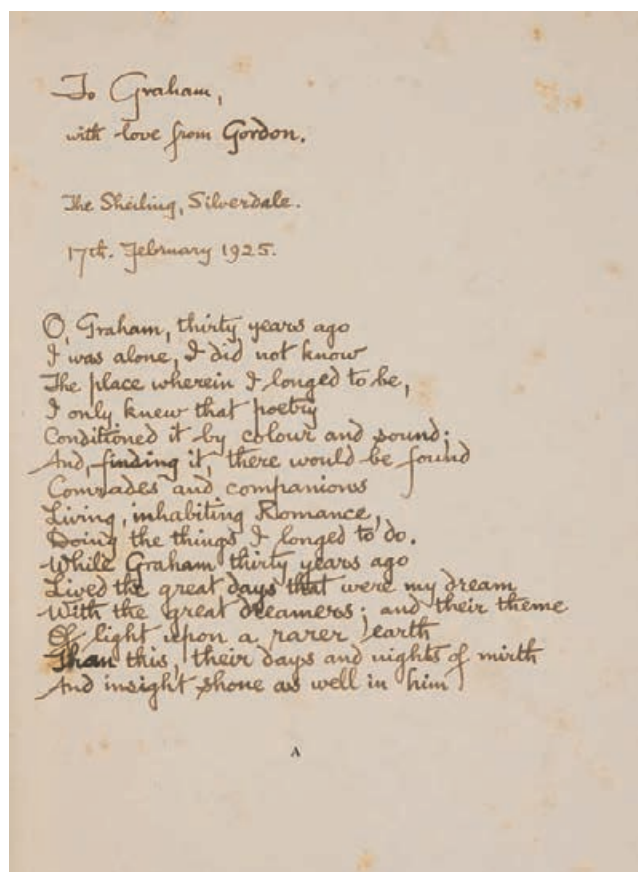 To Graham,
with love from Gordon.
The Sheiling, Silverdale.
17th. February 1925.
O, Graham, thirty years ago
I was alone, I did not know
The place wherein I longed to be,
I only knew that poetry
Conditioned it by colour and sound;
And, finding it, there would be found
Comrades and companions
Living, inhabiting Romance,
Doing the things I longed to do.
While Graham thirty years ago
Lived the great days that were my dream
With the great dreamers; and their theme
Of light upon a rarer earth
Than this, their days and nights of mirth
And insight shone as well in him
A